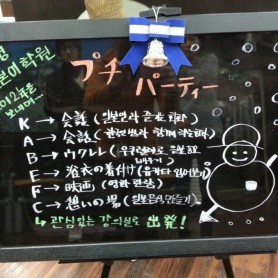 본어학원
2012년을
보내며~
プチ
パーティー
K → 会話 (일본인과 프리토킹)
A → 会話 (원어민과 함께
B → ウクレレ (우쿨렐레로
배우기)
E → 浴衣の着付け (유카타 입어보기)
F → 映画 (영화관람)
C → 想いの場
↳ 관심있는 강의실로 出発!